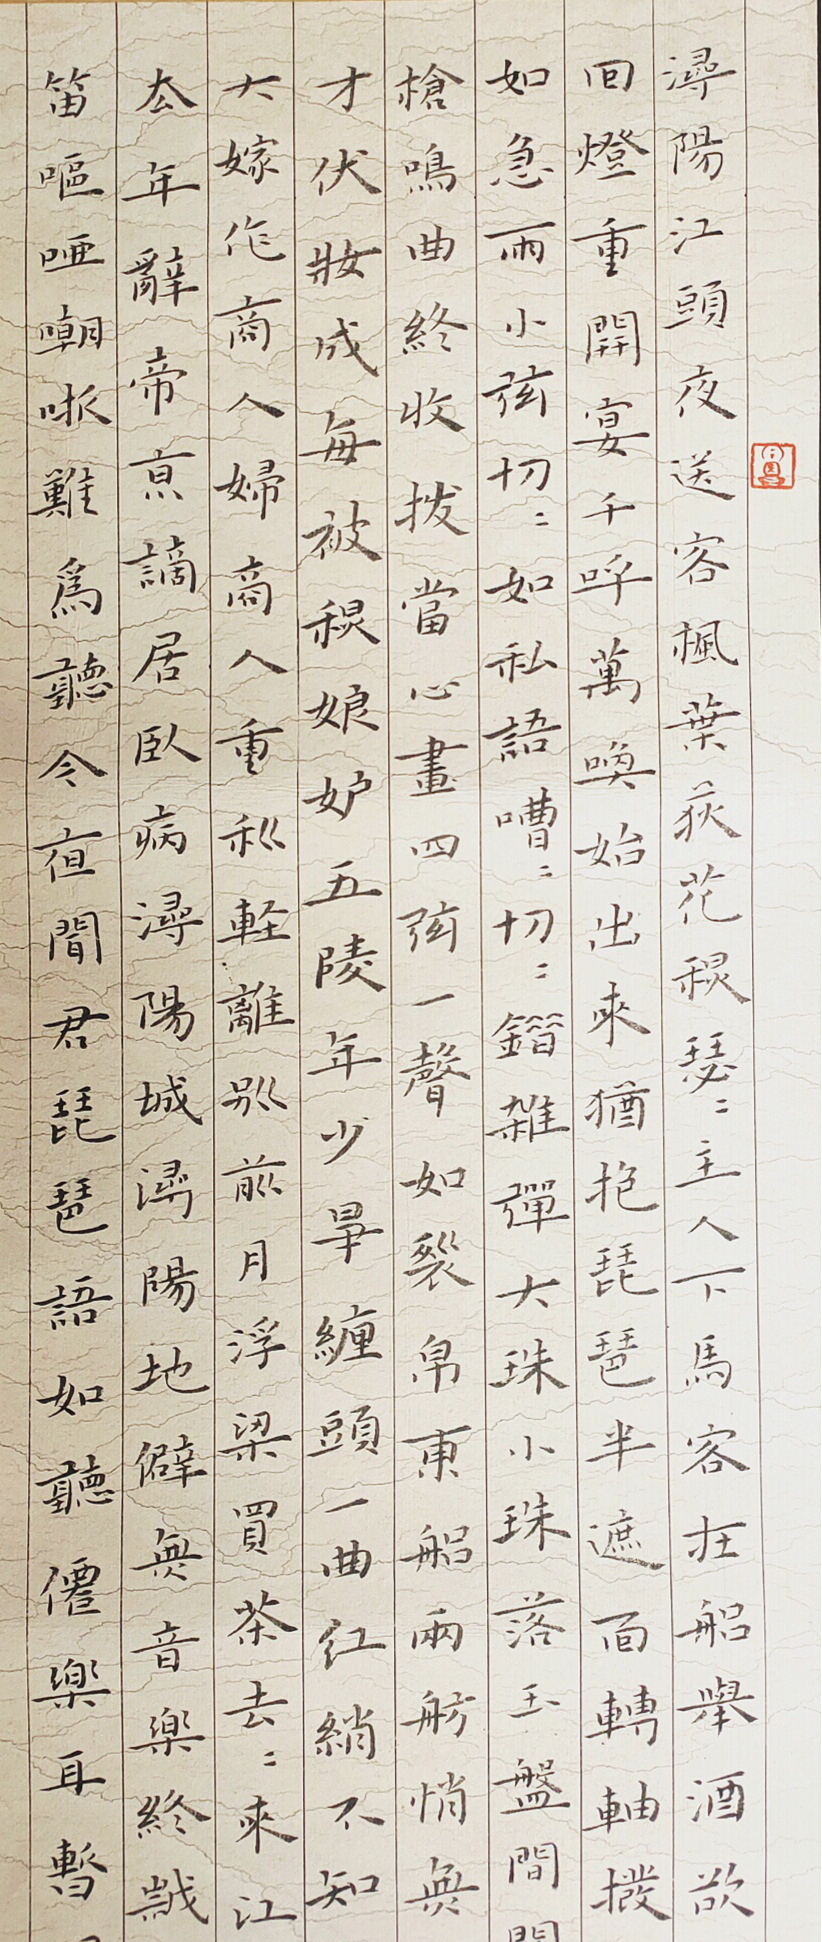 潯陽江頭夜送客楓葉荻花秋瑟〻主人下馬客在船舉酒欲
回燈重開宴千呼萬喚始出來猶抱琵琶半遮面轉軸撥
如急雨小弦切〻如私語嘈〻切〻錯雜彈大珠小珠落玉盤間
槍鳴曲終收撥當心畫四弦一聲如裂帛東船兩舫悄無
才伏妝成每被秋娘妒五陵年少爭纏頭一曲紅綃不知
大嫁作商人婦商人重利輕離別前月浮梁買茶去〻來江
去年辭帝京謫居臥病潯陽城潯陽地僻無音樂終歲
笛嘔啞嘲哳難爲聽今夜聞君琵琶語如聽僊樂耳暫